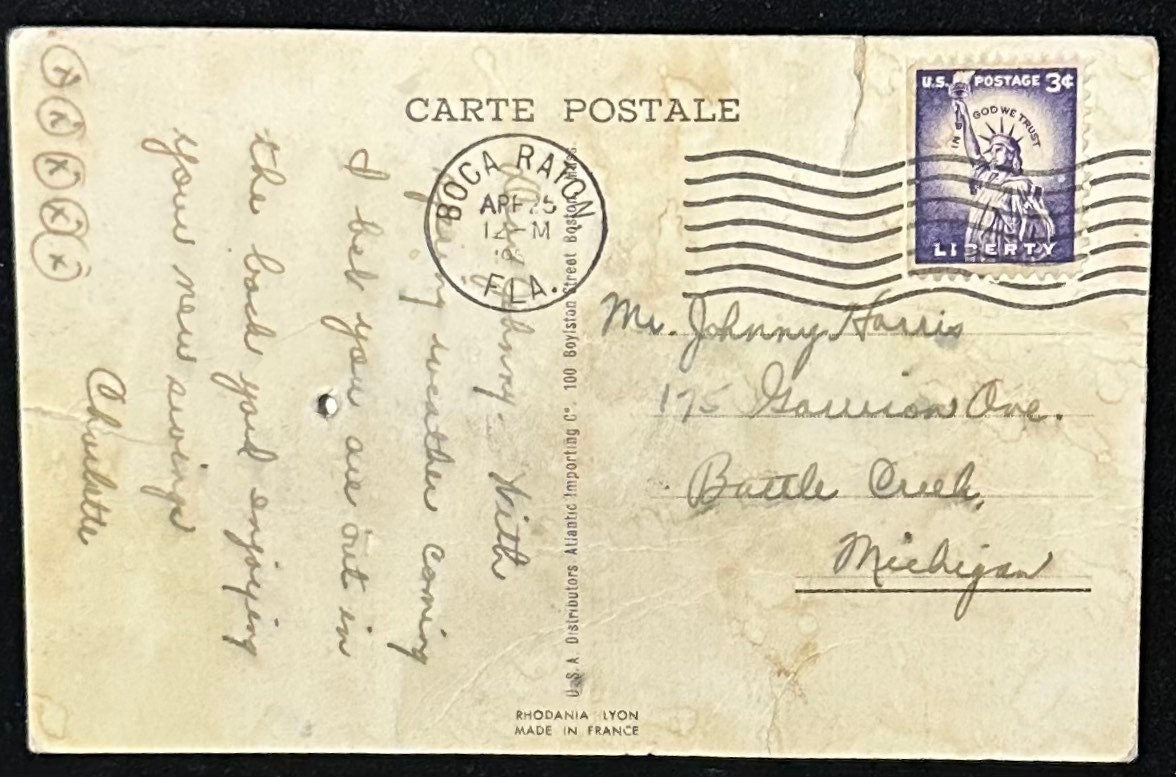 CARTE POSTALE
U.S. POSTAGE 3¢
IN GOD WE TRUST
LIBERTY
BOCA RATON
APR 25
12 M
FLA.
Johnny. With
spring weather coming
I bet you are out in
the back yard enjoying
your new swings
Charlotte
x x x x x
U.S.A. Distributors Atlantic Importing Co. 100 Boylston Street Boston Mass.
Mr. Johnny Harris
175 Garrison Ave.
Battle Creek,
Michigan
RHODANIA LYON
MADE IN FRANCE